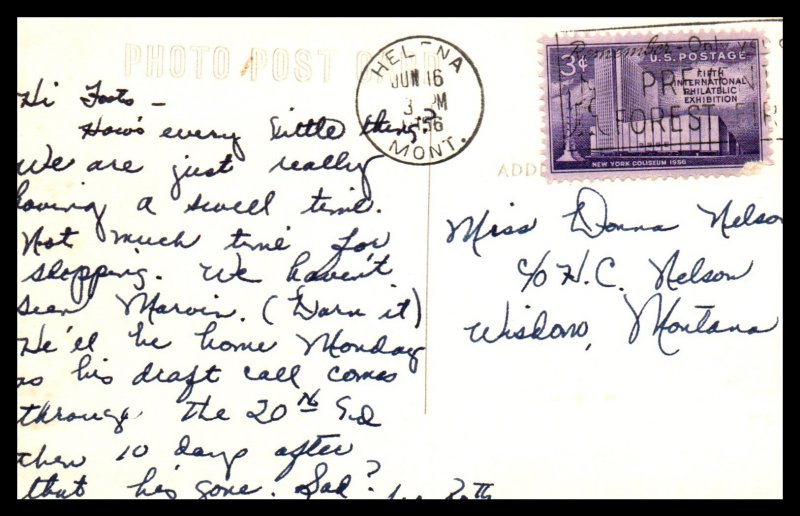 PHOTO POST CARD
HELENA
JUN 16
3 PM
1956
MONT.
Remember - Only you
PREVENT
FOREST FIR
3¢
U.S. POSTAGE
FIFTH
INTERNATIONAL
PHILATELIC
EXHIBITION
NEW YORK COLISEUM 1956
ADD
Hi Toots -
How's every little thing?
We are just really
having a swell time.
Not much time for
shopping. We haven't
seen Marvin. (Darn it)
He'll be home Monday
as his draft call comes
through the 20th
then 10 days after
that he's gone. Sad?
Miss Donna Nelson
c/o H.C. Nelson
Wisdom, Montana